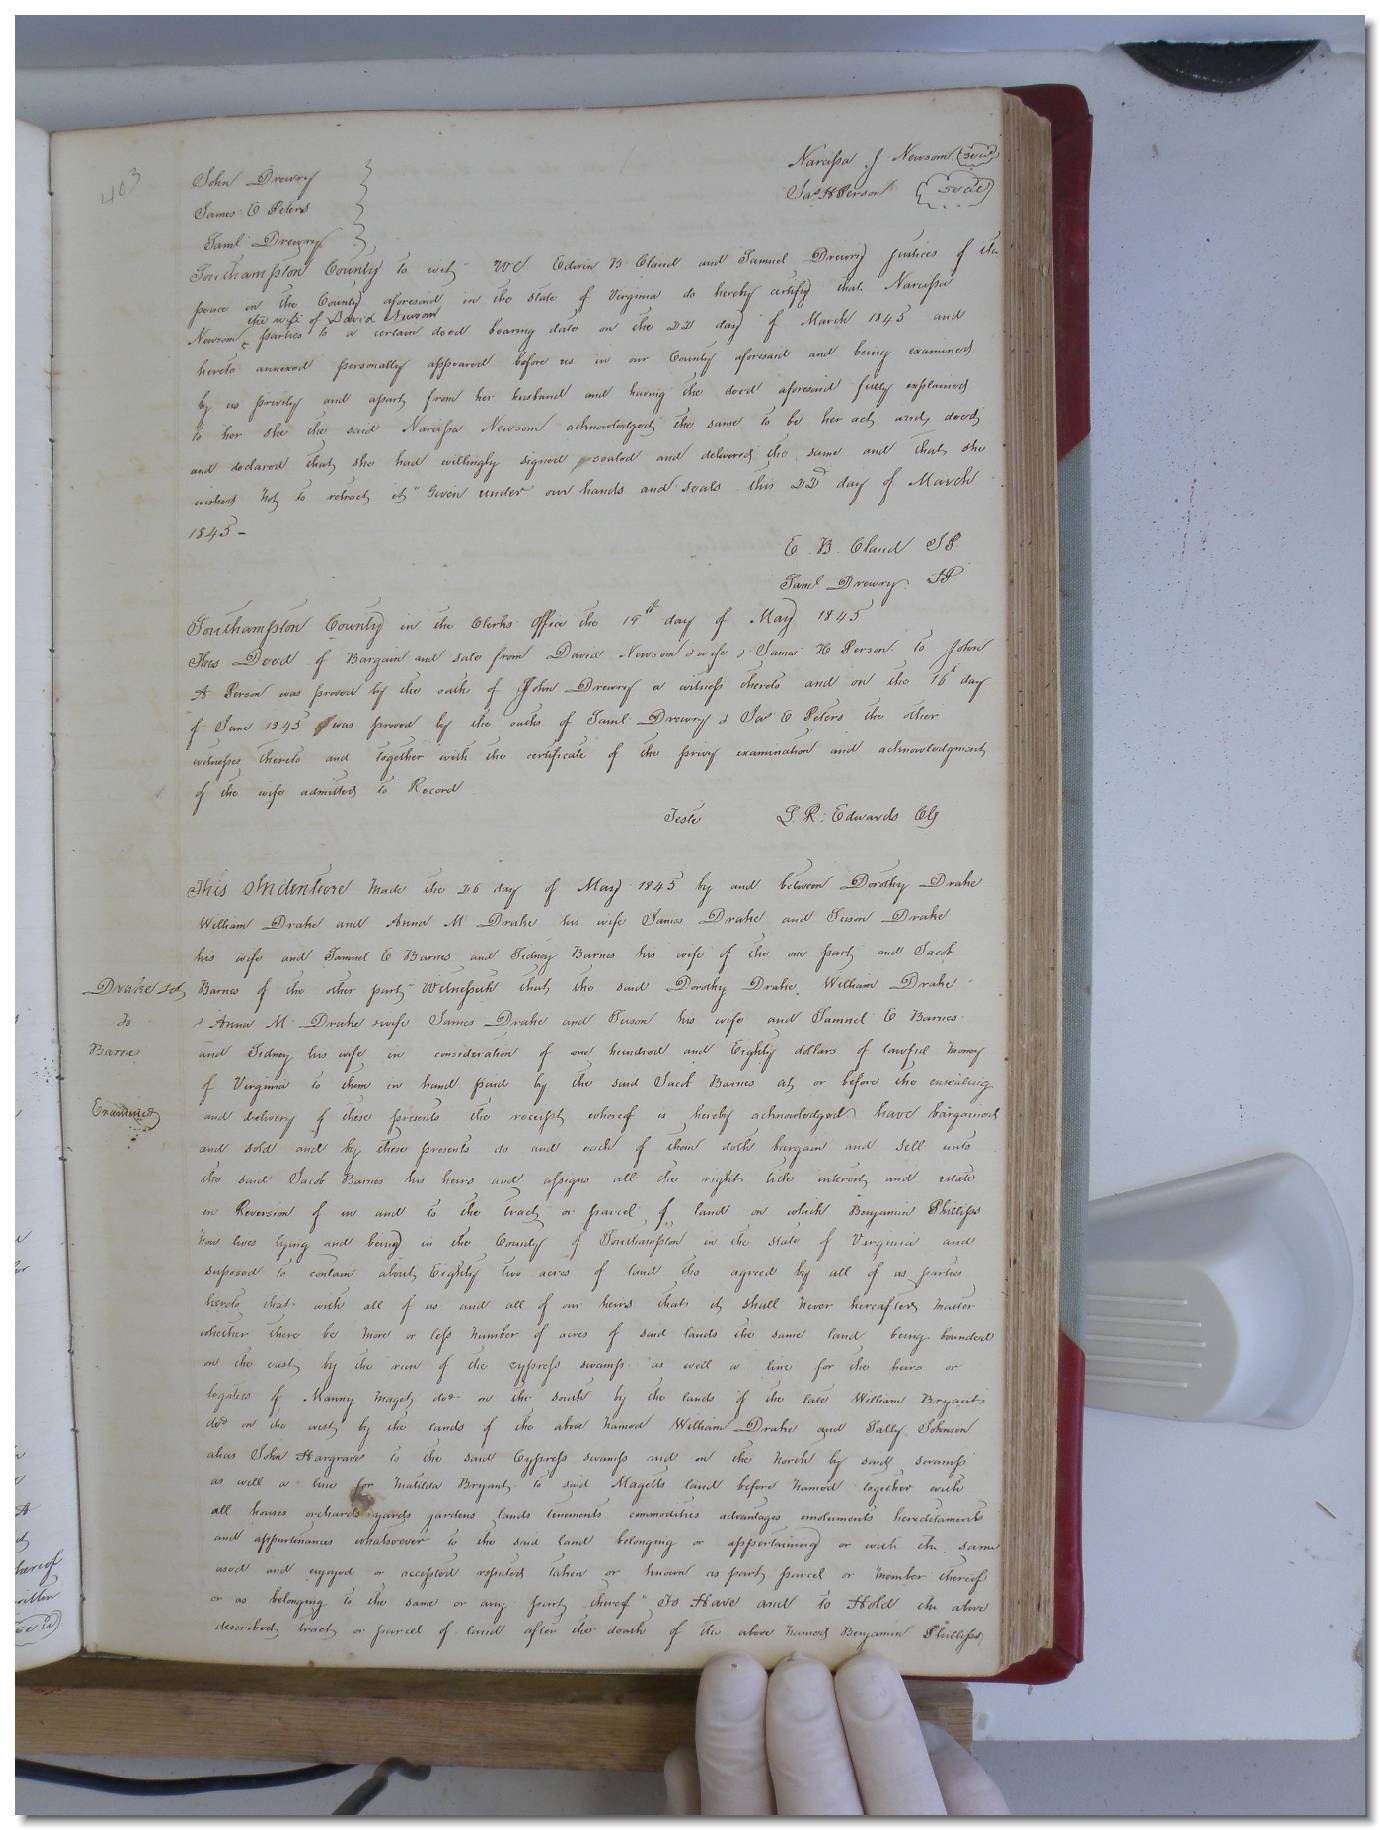 403
John Drewry
James E Peters
Saml Drewry
Narcissa J Newsom (seal)
Jas H Person (seal)
Southampton County to wit We Edwin B Claud and Samuel Drewry justices of the
peace in the County aforesaid in the state of Virginia do hereby certify that Narcissa
the wife of David Newsom
Newsom parties to a certain deed bearing date on the 22 day of March 1845 and
hereto annexed personally appeared before us in our County aforesaid and being examined
by us privily and apart from her husband and having the deed aforesaid fully explained
to her she the said Narcissa Newsom acknowledged the same to be her act and deed
and declared that she had willingly signed sealed and delivered the same and that she
wished not to retract it" Given under our hands and seals this 22d day of March
1845 -
E. B. Claud JP.
Saml Drewry. JP
Southampton County in the Clerks Office the 19th day of May 1845
This Deed of Bargain and sale from David Newsom & wife & James H Person to John
A Person was proved by the oath of John Drewry a witness thereto and on the 16th day
of June 1845 was proved by the oaths of Saml Drewry & Jas E Peters the other
witnesses thereto and together with the certificate of the privy examination and acknowledgment
of the wife admitted to Record
Teste L. R. Edwards Clk
This Indenture Made the 26 day of May 1845 by and between Dorothy Drake
William Drake and Anna M Drake his wife James Drake and Susan Drake
his wife and Samuel E Barnes and Sidney Barnes his wife of the one part and Jacob
Drake &c
to
Barnes
Examined
Barnes of the other part Witnesseth that the said Dorothy Drake, William Drake
& Anna M. Drake wife James Drake and Susan his wife and Samuel E Barnes
and Sidney his wife in consideration of one hundred and Eighty dollars of lawful money
of Virginia to them in hand paid by the said Jacob Barnes at or before the ensealing
and delivery of these presents the receipt whereof is hereby acknowledged have bargained
and sold and by these presents do and each of them doth bargain and sell unto
the said Jacob Barnes his heirs and assigns all the right title interest and estate
in Reversion of in and to the tract or parcel of land on which Benjamin Phillips
now lives lying and being in the County of Southampton in the state of Virginia and
suposed to contain about Eighty two acres of land tho agreed by all of us parties
hereto that with all of us and all of our heirs that it shall never hereafter matter
whether there be more or less number of acres of said lands the same land being bounded
on the east by the run of the cypress swamp as well a line for the heirs or
legatees of Manny Magety decd on the south by the lands of the late William Bryant
decd on the west by the lands of the above named William Drake and Sally Johnson
alias John Hargrave to the said Cypress swamp and on the North by said swamp
as well a line for Matilda Bryant to said Magetts land before named together with
all houses orchards yards gardens lands tenements commodities advantages emoluments hereditaments
and appurtenances whatsoever to the said land belonging or appertaining or with the same
used and enjoyed or accepted reputed taken or known as part parcel or member thereof
or as belonging to the same or any part thereof" To Have and to Hold the above
described tract or parcel of land after the death of the above named Benjamin Phillips
hereof